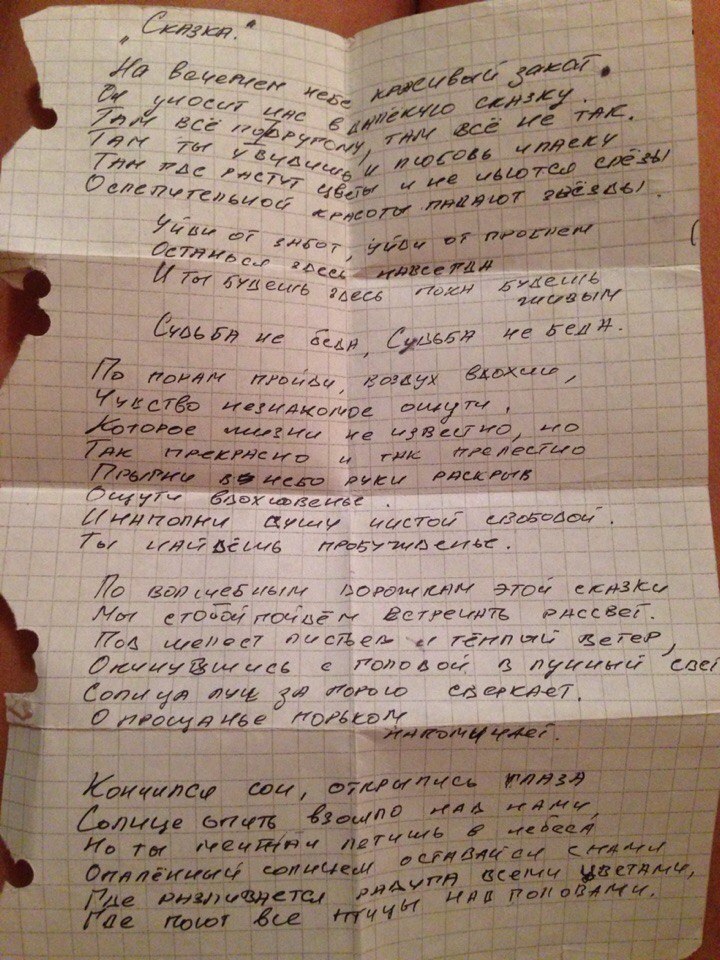 „Сказка."
На вечернем небе красивый закат.
Он уносит нас в далёкую сказку.
Там всё подругому, там всё не так.
Там ты увидишь и любовь и ласку
Там где растут цветы и не льются слёзы
Ослепительной красоты падают звёзды.
Уйди от забот, уйди от проблем
Останься здесь навсегда
И ты будешь здесь пока будешь
живым
Судьба не беда, Судьба не беда.
По полям пройди, воздух вдохни,
Чувство незнакомое ощути.
Которое жизни не известно, но
Так прекрасно и так прелестно
Прыгни в небо руки раскрыв
Ощути вдохновенье.
И наполни душу чистой свободой.
Ты найдёшь пробужденье.
По волшебным дорожкам этой сказки
Мы стобой пойдём встречать рассвет.
Под шелест листьев и тёплый ветер,
Окунувшись с головой в лунный свет
Солнца луч за горою сверкает.
О прощанье горьком
напоминает.
Кончился сон, открылись глаза
Солнце опять взошло над нами,
Но ты мечтай летишь в небеса
Опалённый солнцем оставайся с нами
Где разливается радуга всеми цветами,
Где поют все птицы над головами.